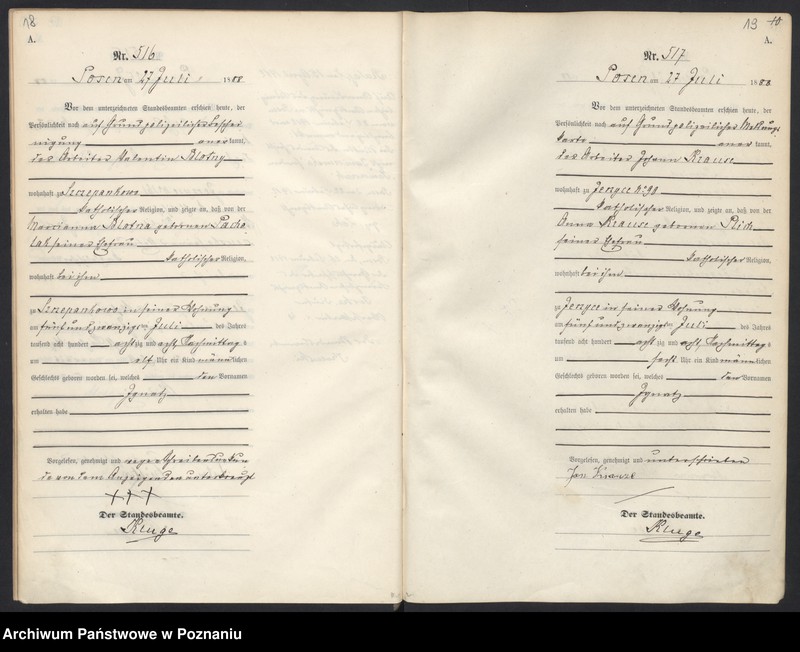 18
A.
Nr. 516
Posen am 27 Juli 1888
Vor dem unterzeichneten Standesbeamten erschien heute, der
Persönlichkeit nach auf Grund polizeilicher Beschei
nigung anerkannt,
des Arbeiter Valentin Blotny
wohnhaft zu Szczepankowo
katholischer Religion, und zeigte an, daß von der
Marcianna Blotna geborenen Pacho
lak seiner Ehefrau
katholischer Religion,
wohnhaft bei ihm
zu Szczepankowo in seiner Wohnung
am fünfundzwanzigten Juli des Jahres
tausend acht hundert achtzig und acht Nachmittags
um elf Uhr ein Kind männlichen
Geschlechts geboren worden sei, welches den Vornamen
Ignatz
erhalten habe
Vorgelesen, genehmigt und wegen Schreibensunkun
de von dem Anzeigenden unterkreuzt
+++
Der Standesbeamte.
Kluge
19 10
A.
Nr. 517
Posen am 27 Juli 1888
Vor dem unterzeichneten Standesbeamten erschien heute, der
Persönlichkeit nach auf Grund polizeilicher Meldungs
karte anerkannt,
des Arbeiter Johann Krause
wohnhaft zu Jerzyce
katholischer Religion, und zeigte an, daß von der
Anna Krause geborenen
seiner Ehefrau
katholischer Religion,
wohnhaft bei ihm
zu Jerzyce in seiner Wohnung
am fünfundzwanzigten Juli des Jahres
tausend acht hundert achtzig und acht, Nachmittags
um sechs Uhr ein Kind männlichen
Geschlechts geboren worden sei, welches den Vornamen
Ignatz
erhalten habe
Vorgelesen, genehmigt und unterschrieben
Jan Krauze
Der Standesbeamte.
Kluge
Archiwum Państwowe w Poznaniu